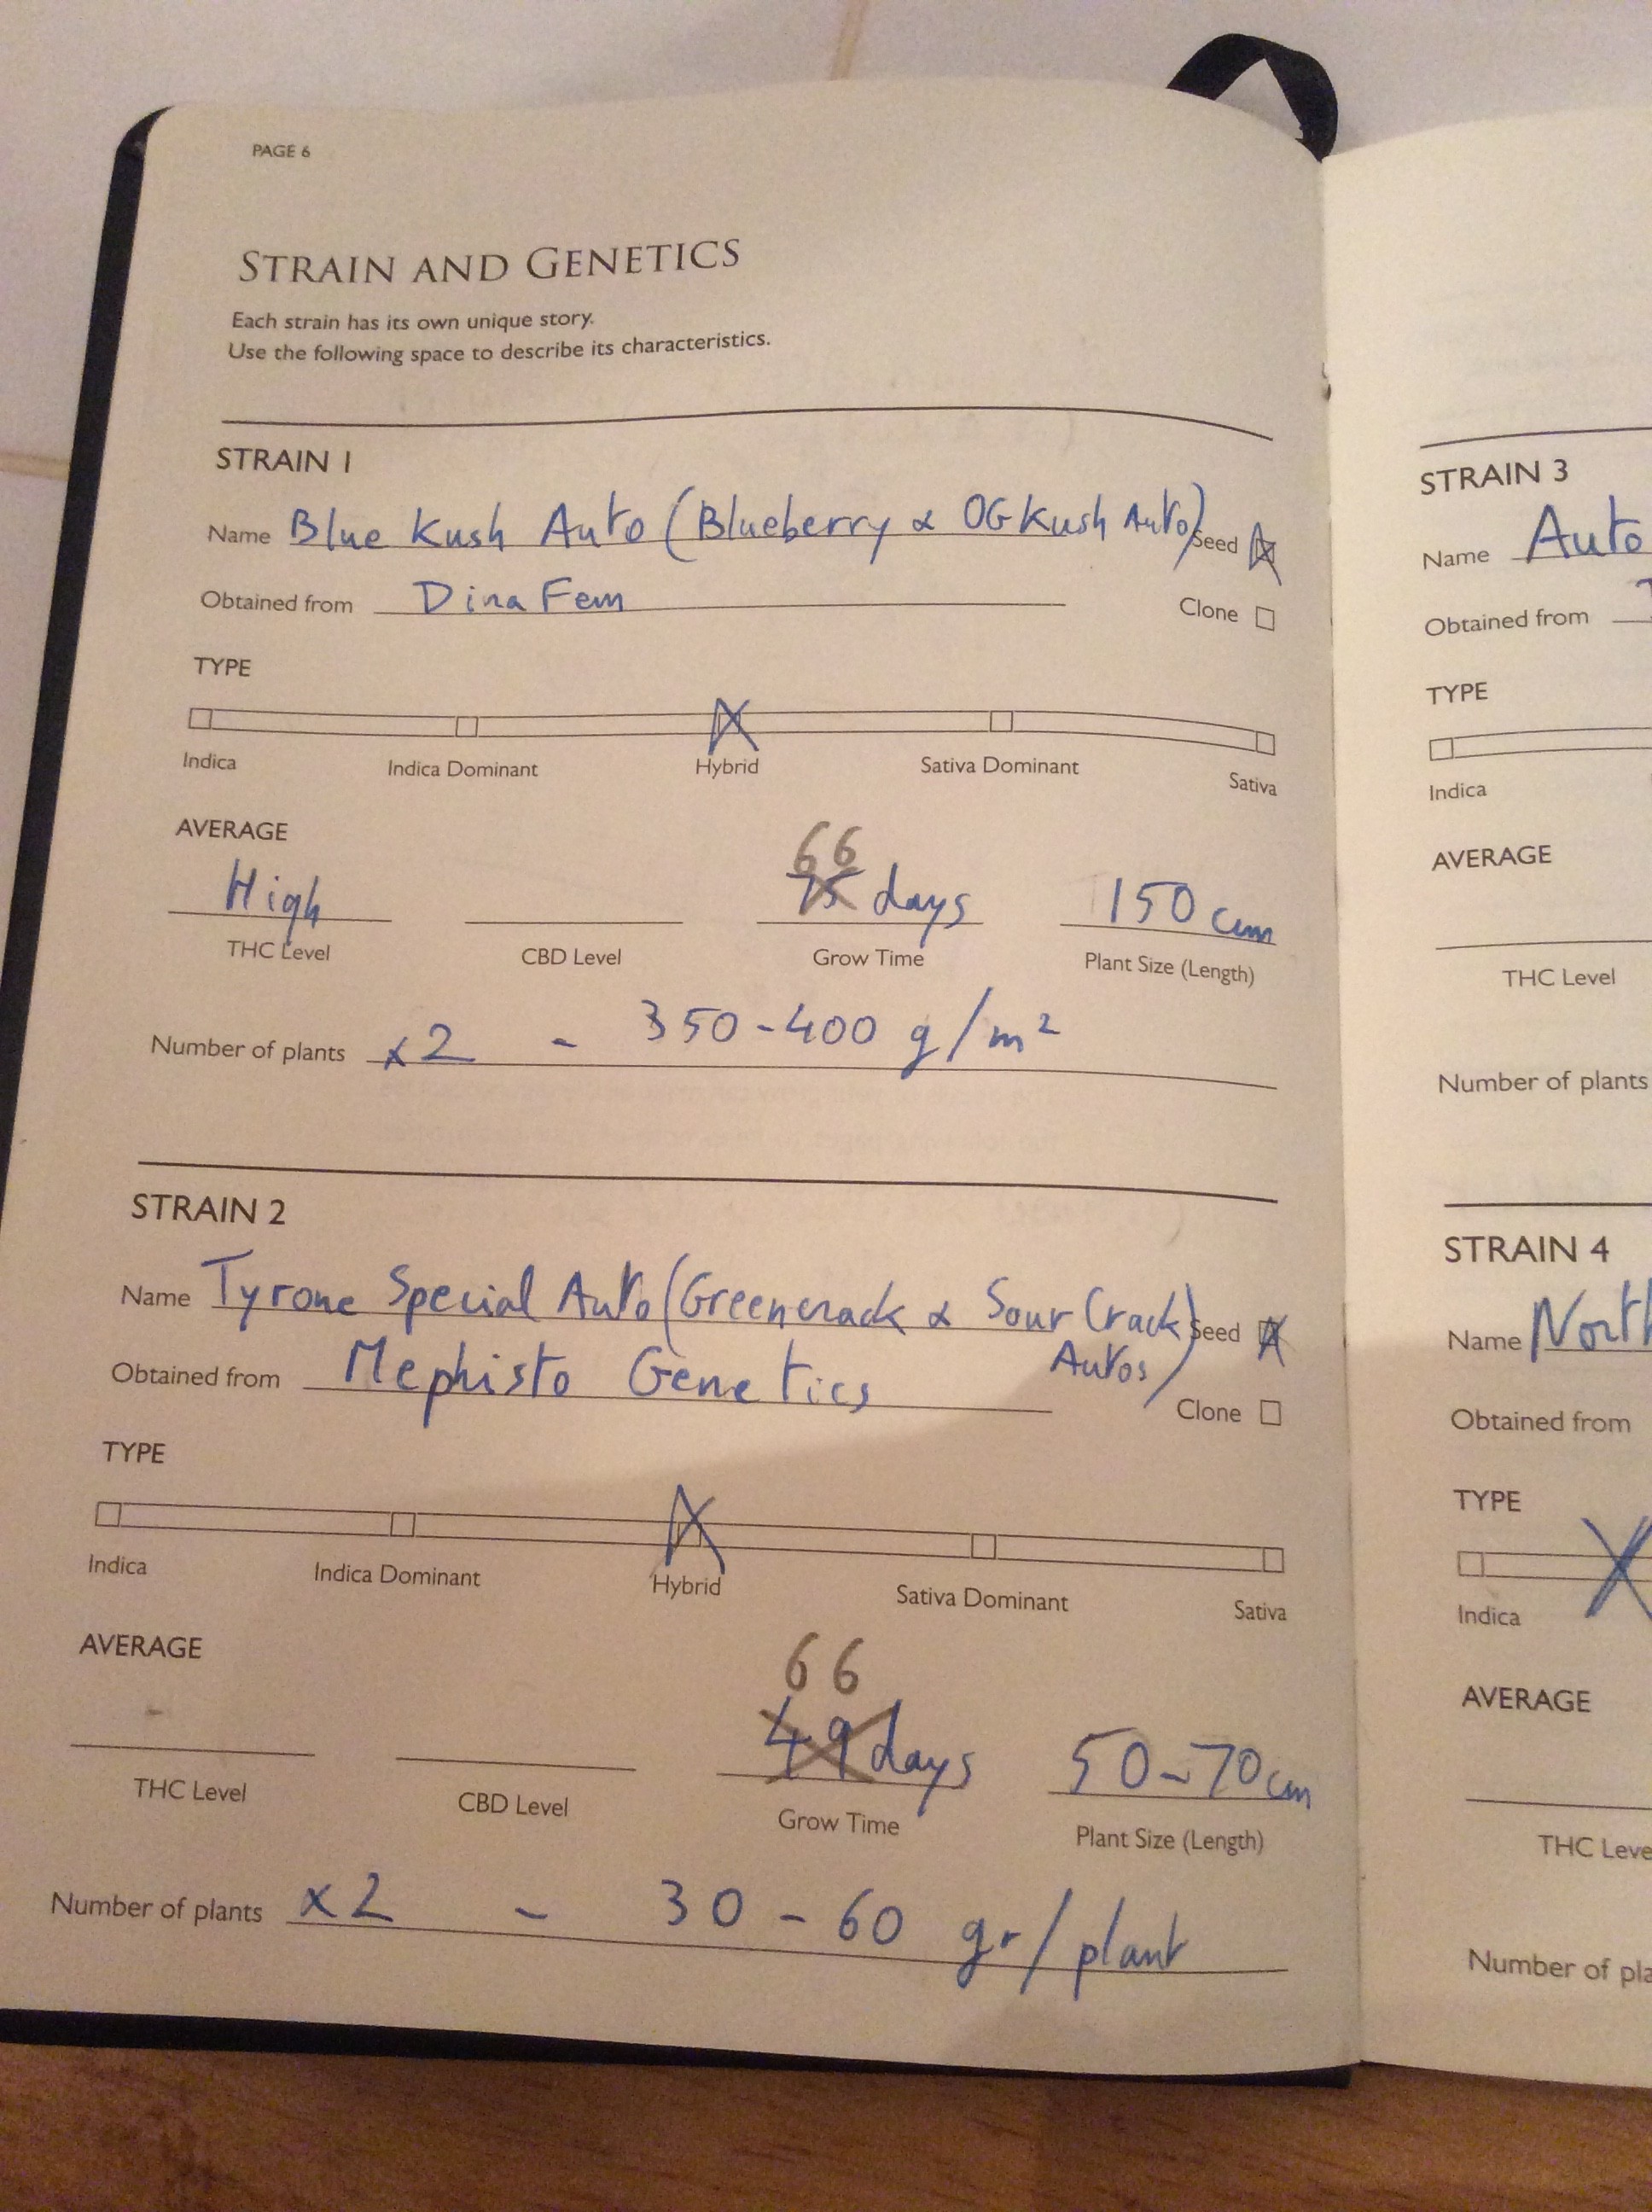 PAGE 6
STRAIN AND GENETICS
Each strain has its own unique story.
Use the following space to describe its characteristics.
STRAIN 1
Name Blue Kush Auto (Blueberry & OG Kush Auto) Seed
Obtained from Dina Fem
Clone
TYPE
Indica Indica Dominant Hybrid Sativa Dominant Sativa
AVERAGE
66
High 75 days 150 cm
THC Level CBD Level Grow Time Plant Size (Length)
Number of plants x2 - 350-400 g/m²
STRAIN 2
Name Tyrone Special Auto (Greencrack & Sour Crack) Seed
Autos)
Obtained from Mephisto Genetics
Clone
TYPE
Indica Indica Dominant Hybrid Sativa Dominant Sativa
AVERAGE
66
49 days 50-70 cm
THC Level CBD Level Grow Time Plant Size (Length)
Number of plants x2 - 30-60 gr/plant
STRAIN 3
Name Auto
Obtained from
TYPE
Indica
AVERAGE
THC Level
Number of plants
STRAIN 4
Name North
Obtained from
TYPE
Indica
AVERAGE
THC Leve
Number of pla